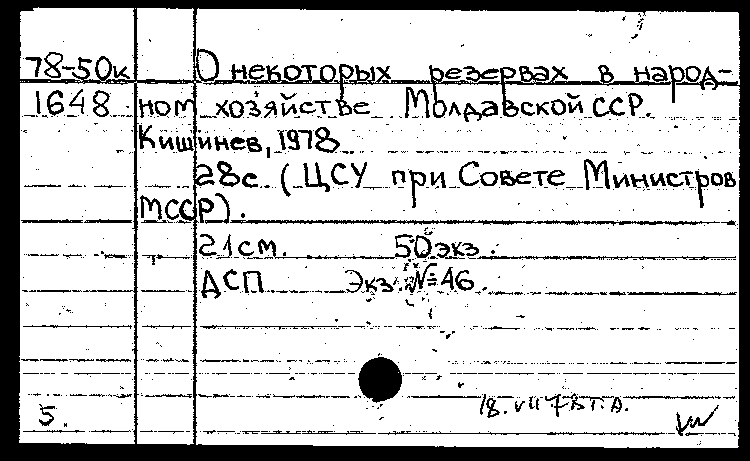 78-50к О некоторых резервах в народ-
1648 ном хозяйстве Молдавской ССР.
Кишинев, 1978
28с. (ЦСУ при Совете Министров
МССР).
21см. 50экз.
ДСП Экз. №46.
18.VII 78
5.